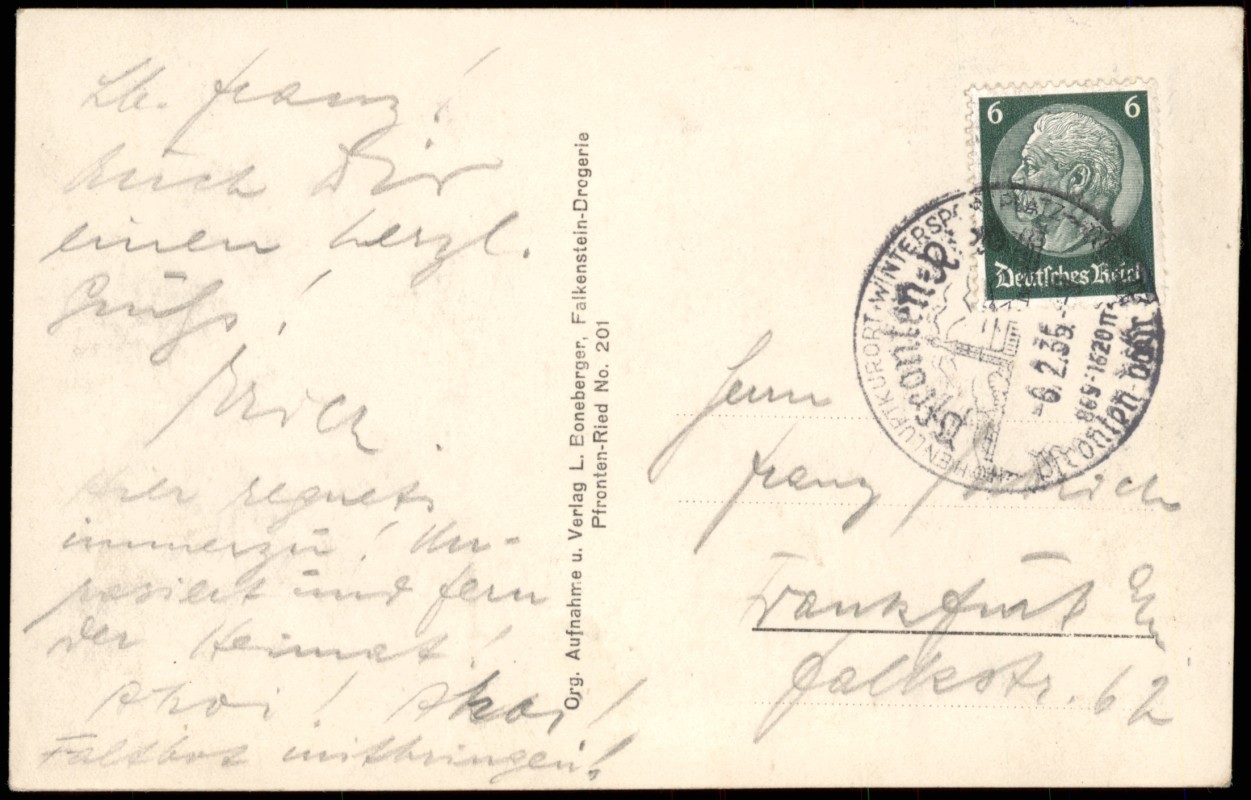 Lb. Franz!
Auch Dir
einen herzl.
Gruß!
Erich.
Hier regnets
immerzu! Un-
rasiert und fern
der Heimat!
Ahoi! Ahoi!
Faltbot mitbringen!
Org. Aufnahme u. Verlag L. Eoneberger, Falkenstein-Drogerie
Pfronten-Ried No. 201
6 6
Deutsches Reich
HÖHENLUFTKURORT u. WINTERSPORTPLATZ
Pfronten
-6.2.35.
869-1620 m
Pfronten
Herrn
Franz
Frankfurt
Falkstr. 62